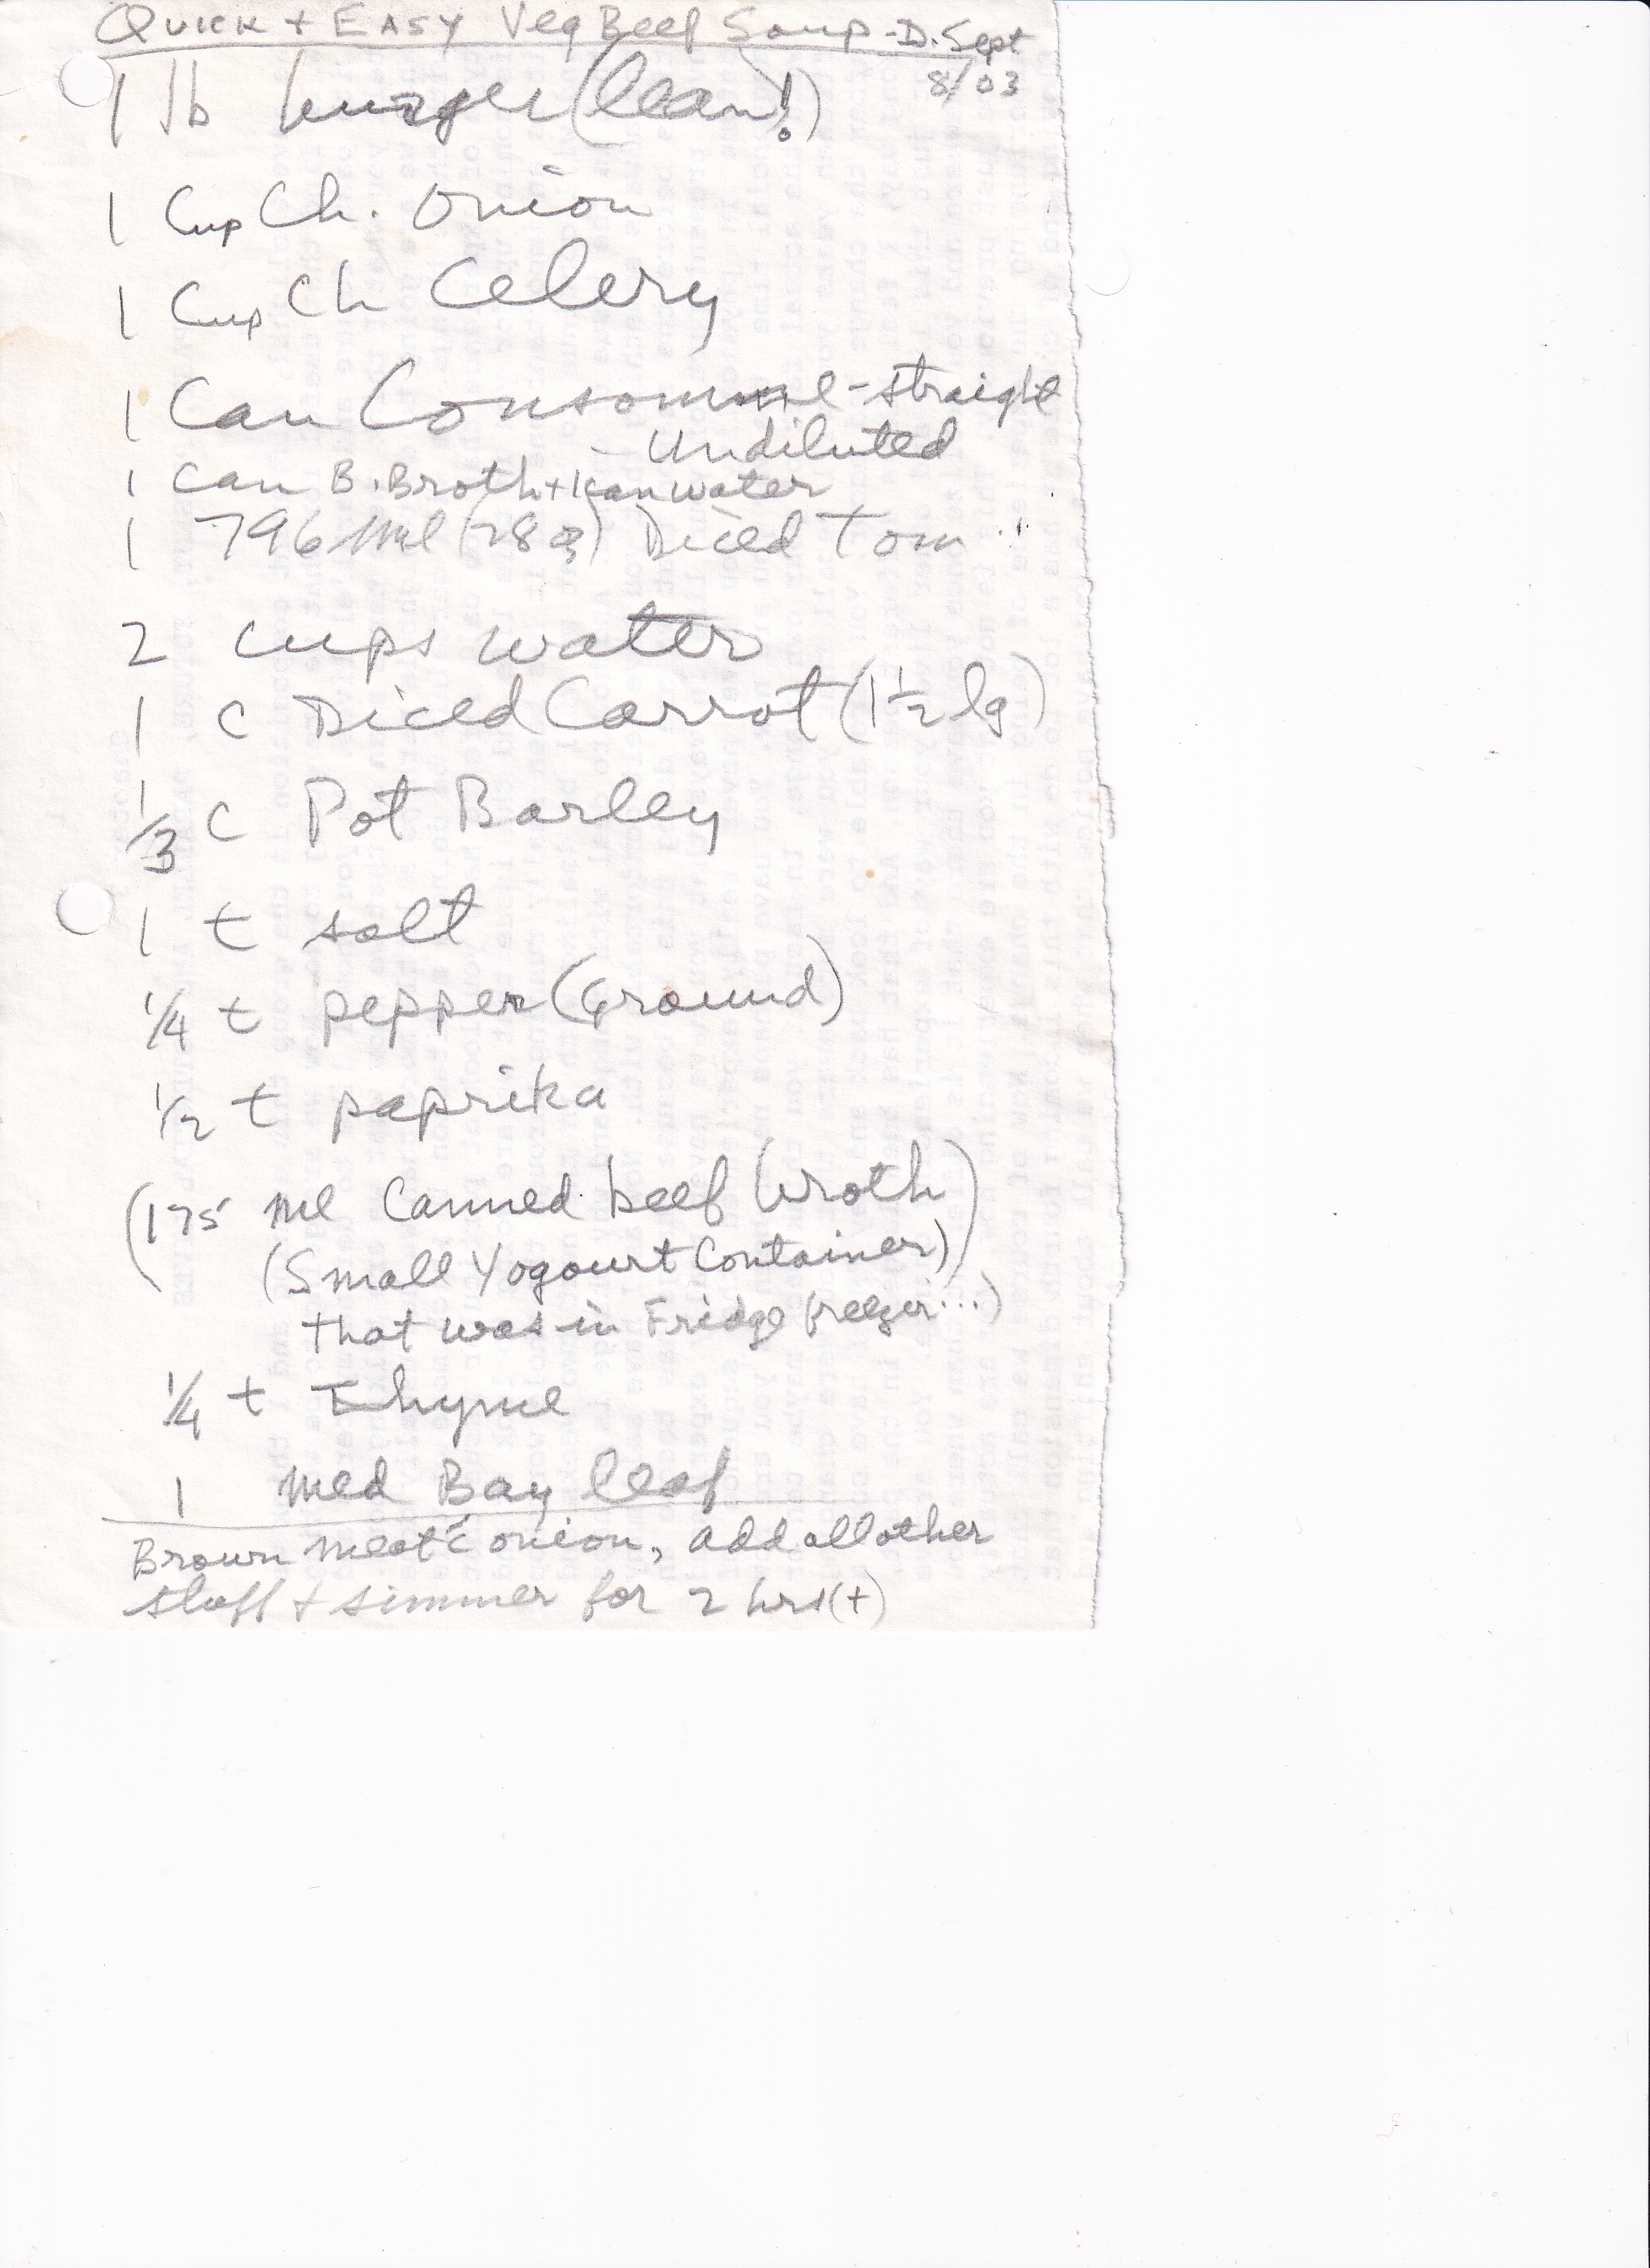 Quick + Easy Veg Beef Soup - D. Sept
8/03
1 lb burger (lean!)
1 Cup Ch. Onion
1 Cup Ch Celery
1 Can Consomme - straight
- Undiluted
1 can B. Broth + 1 can water
1 796 Ml (28 oz) Diced Tom
2 cups water
1 c Diced Carrot (1 1/2 lg)
1/3 c Pot Barley
1 t salt
1/4 t pepper (Ground)
1/2 t paprika
(175 ml Canned beef broth)
(Small Yogourt Container)
that was in Fridge freezer...)
1/4 t Thyme
1 med Bay leaf
Brown meat c̄ onion, add all other
stuff + simmer for 2 hrs (+)